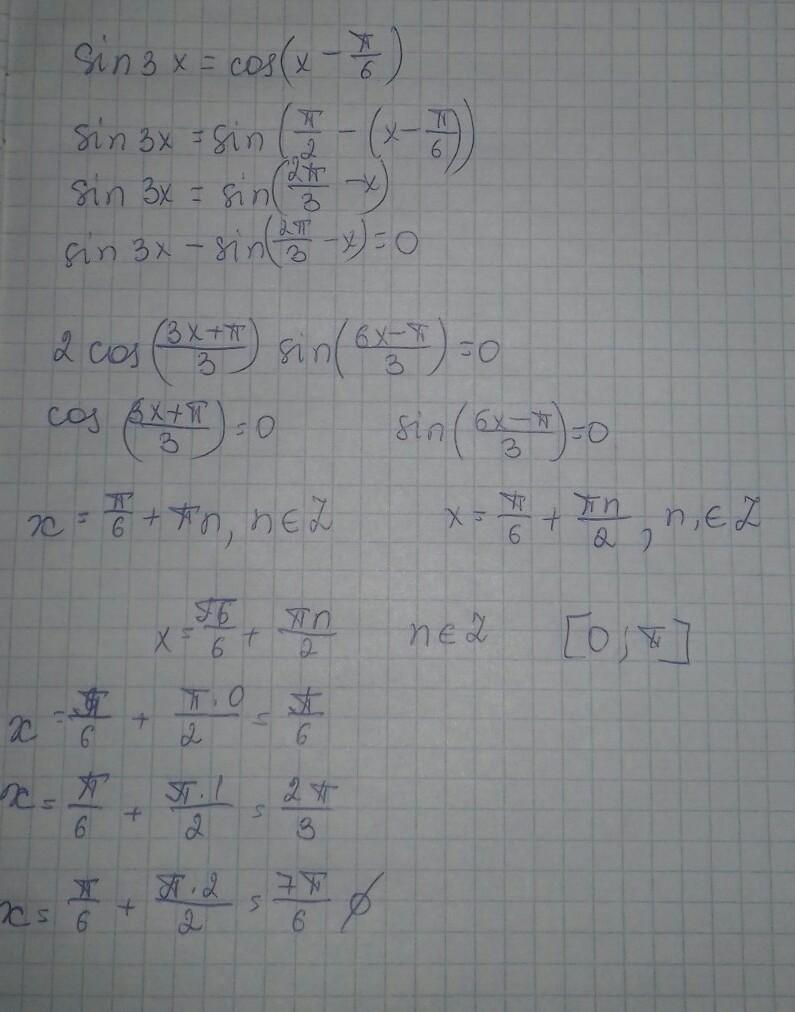 sin 3x = cos(x - π/6)
sin 3x = sin(π/2 - (x - π/6))
sin 3x = sin(2π/3 - x)
sin 3x - sin(2π/3 - x) = 0
2 cos((3x+π)/3) sin((6x-π)/3) = 0
cos((3x+π)/3) = 0 sin((6x-π)/3) = 0
x = π/6 + πn, n ∈ Z x = π/6 + πn/2, n, ∈ Z
x = π/6 + πn/2 n ∈ Z [0; π]
x = π/6 + π·0/2 = π/6
x = π/6 + π·1/2 = 2π/3
x = π/6 + π·2/2 = 7π/6 ∅